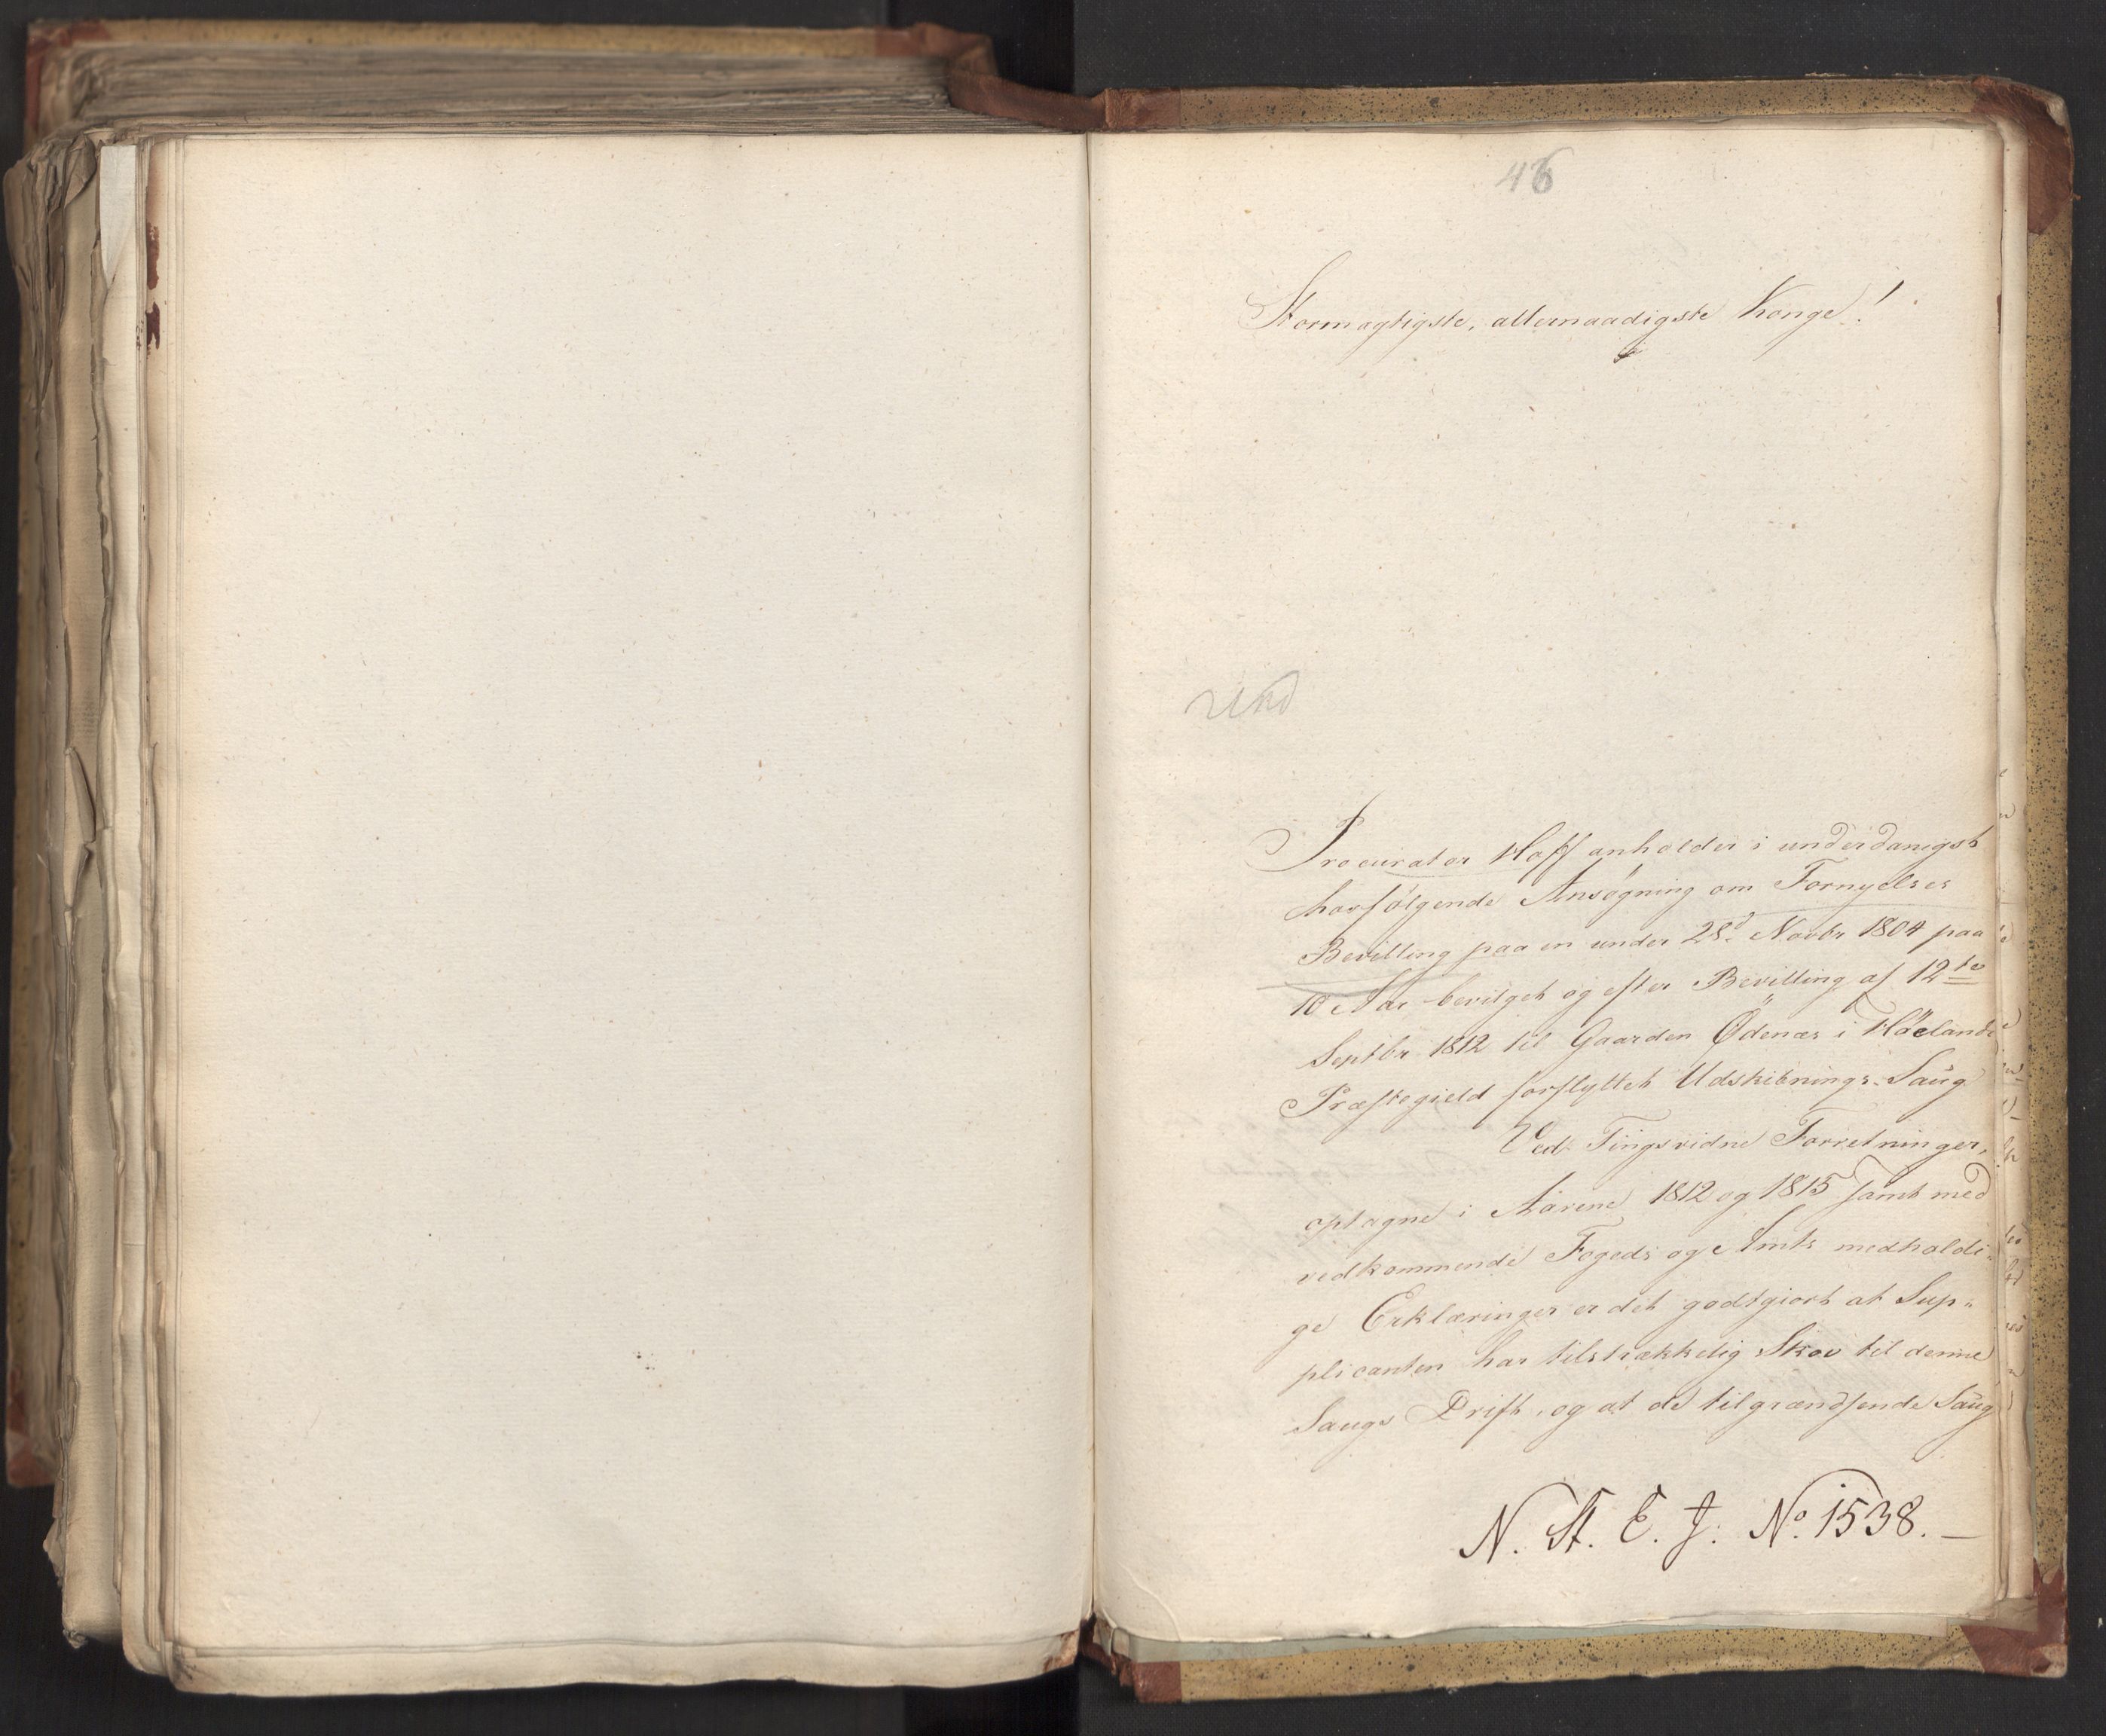 46
Stormægtigste, allernaadigste Konge!
Procurator Hoff anholder i underdanigst
hosfølgende Ansøgning om Fornyelses
Bevilling paa en under 28d Novbr 1804 paa
10 Aar bevilget og efter Bevilling af 12te
Septbr 1812 til Gaarden Ødenæs i Høelands
Præstegield forflyttet Udskibnings-Saug
Ved Tingsvidne Forretninger,
optagne i Aarene 1812 og 1815 samt med
vedkommende Fogeds og Amts medholdi-
ge Erklæringer er det godtgiort at Sup-
plicanten har tilstrækkelig Skov til denne
Saugs Drift, og at de tilgrændsende Saug
N. St. E. J. No. 1538.